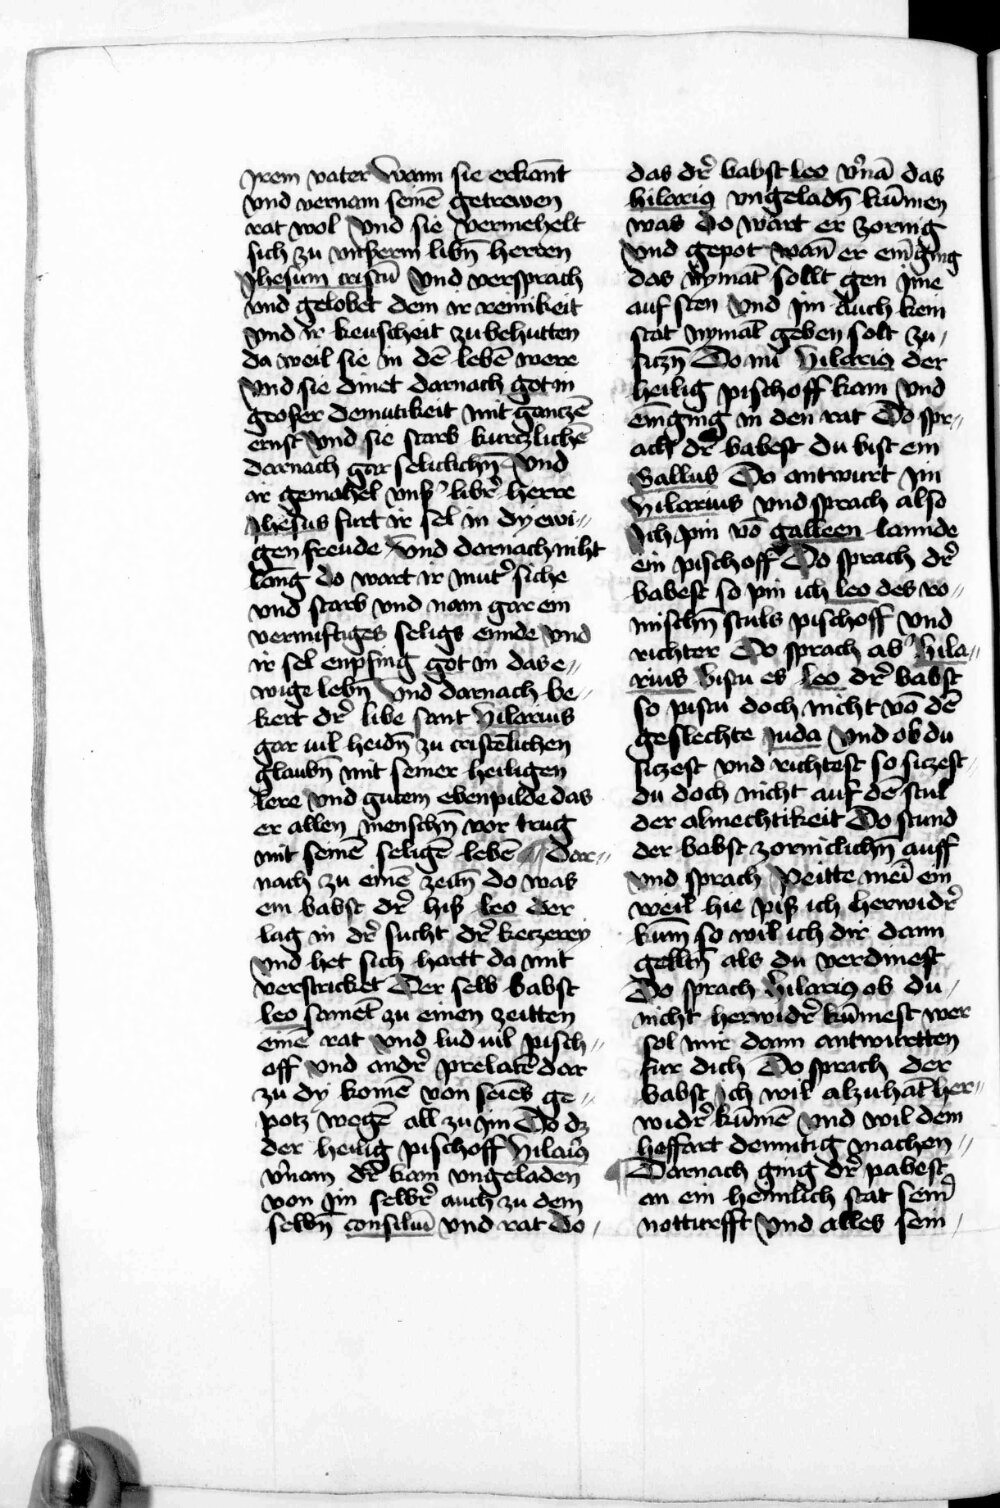 irem vater Wann sie erkant
vnd vernam seinē getrewen
rat wol Vnd sie vermehelt
sich zu vnserm libn̄ herren
Jhesum cristū Vnd versprach
vnd gelobet dem ir reinikeit
vnd ir keuscheit zu behutten
da weil sie in dē lebē were
Vnd sie dinet darnach got in
groser demutikeit mit ganczē
ernst Vnd sie starb kurczlichē
darnach gar seliclichn̄ Vnd
ir gemahel vnsʼ librʼ herre
Jhesus furt ir sel in dy ewi//
gen freude Vnd darnach niht
lang do wart ir mutʼ siche
vnd starb vnd nam gar ein
vernuftiges seligs ennde Vnd
ir sel enpfing got in das e//
wige lebn̄ Vnd darnach be//
kert drʼ libe sant Hilarius
gar uil heidn̄ zu cristēlichen
glaubn̄ mit seiner heiligen
lere Vnd gutem ebenpilde das
er allen menschn̄ vor trug
mit seinē seligē lebē ¶ Dar//
nach zu einē zeitn̄ do was
ein babst drʼ hiß leo der
lag in drʼ sucht drʼ keczerey
Vnd het sich hartt da mit
verstricket Der selb babst
leo samēt zu einen zeitten
einē rat Vnd lud uil pisch//
off Vnd andrʼ prelatē dar
zu dy komē von seins ge//
potz wegē all zu im Do dz
der heilig pischoff Hilariꝰ
vʼnam drʼ kam vngeladen
von im selbrʼ auch zu dem
selbn̄ consiliū Vnd rat Do /
das drʼ babst leo vʼnā das
hilariꝰ vngeladn̄ kūmen
was Do wart er zornig
Vnd gepot wan̄ er eingīng
das nymāt sollt gen ime
auf sten Vnd im auch kein
stat nymāt geben solt zu /
siczn̄ Do nu Hilariꝰ der
heilig pischoff kam Vnd
einging in den rat Do spr//
ach drʼ babest du bist ein
Gallus Do antwurt im
Hilarius Vnd sprach also
Ich pin vō galleen lannde
ein pischoff Do sprach drʼ
babest so pin ich leo des ro//
mischn̄ stuls pischoff Vnd
richter Do sprach abʼ Hila//
rius bistu es leo drʼ babst
so pistu doch nicht vō dē
geslechte iuda Vnd ob du
siczest vnd richtest so siczest
du doch nicht auf dē stul
der almechtikeit Do stund
der babst zorniclichn̄ auff
Vnd sprach Peitte mein ein
weil hie piß ich herwidrʼ
kum̄ so wil ich dir dann
geltn̄ als du verdinest
Do sprach Hilariꝰ ob du /
nicht herwidrʼ kūmest wer
sol mir dann antwurtten
fur dich Do sprach der
babst Ich wil alzuhāt her//
widrʼ kūmē Vnd wil dem
hoffart demutig machen //
¶ Darnach ging drʼ pabest
an ein heimlich stat seinʼ
notturfft Vnd alles sein /